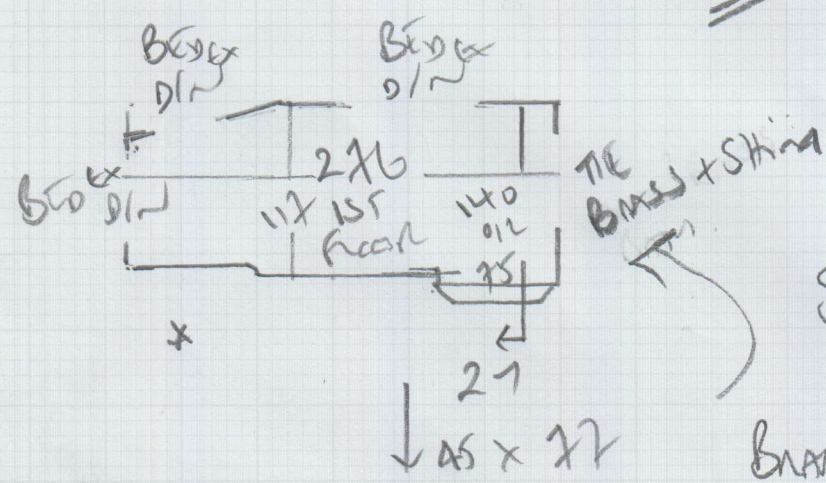 BED EX
DIN
BED EX
DIN
BED EX
DIN
276
117 155
FLOOR
140
012
75
TIE
BRASS + SHIM
21
45 x 77
BRA